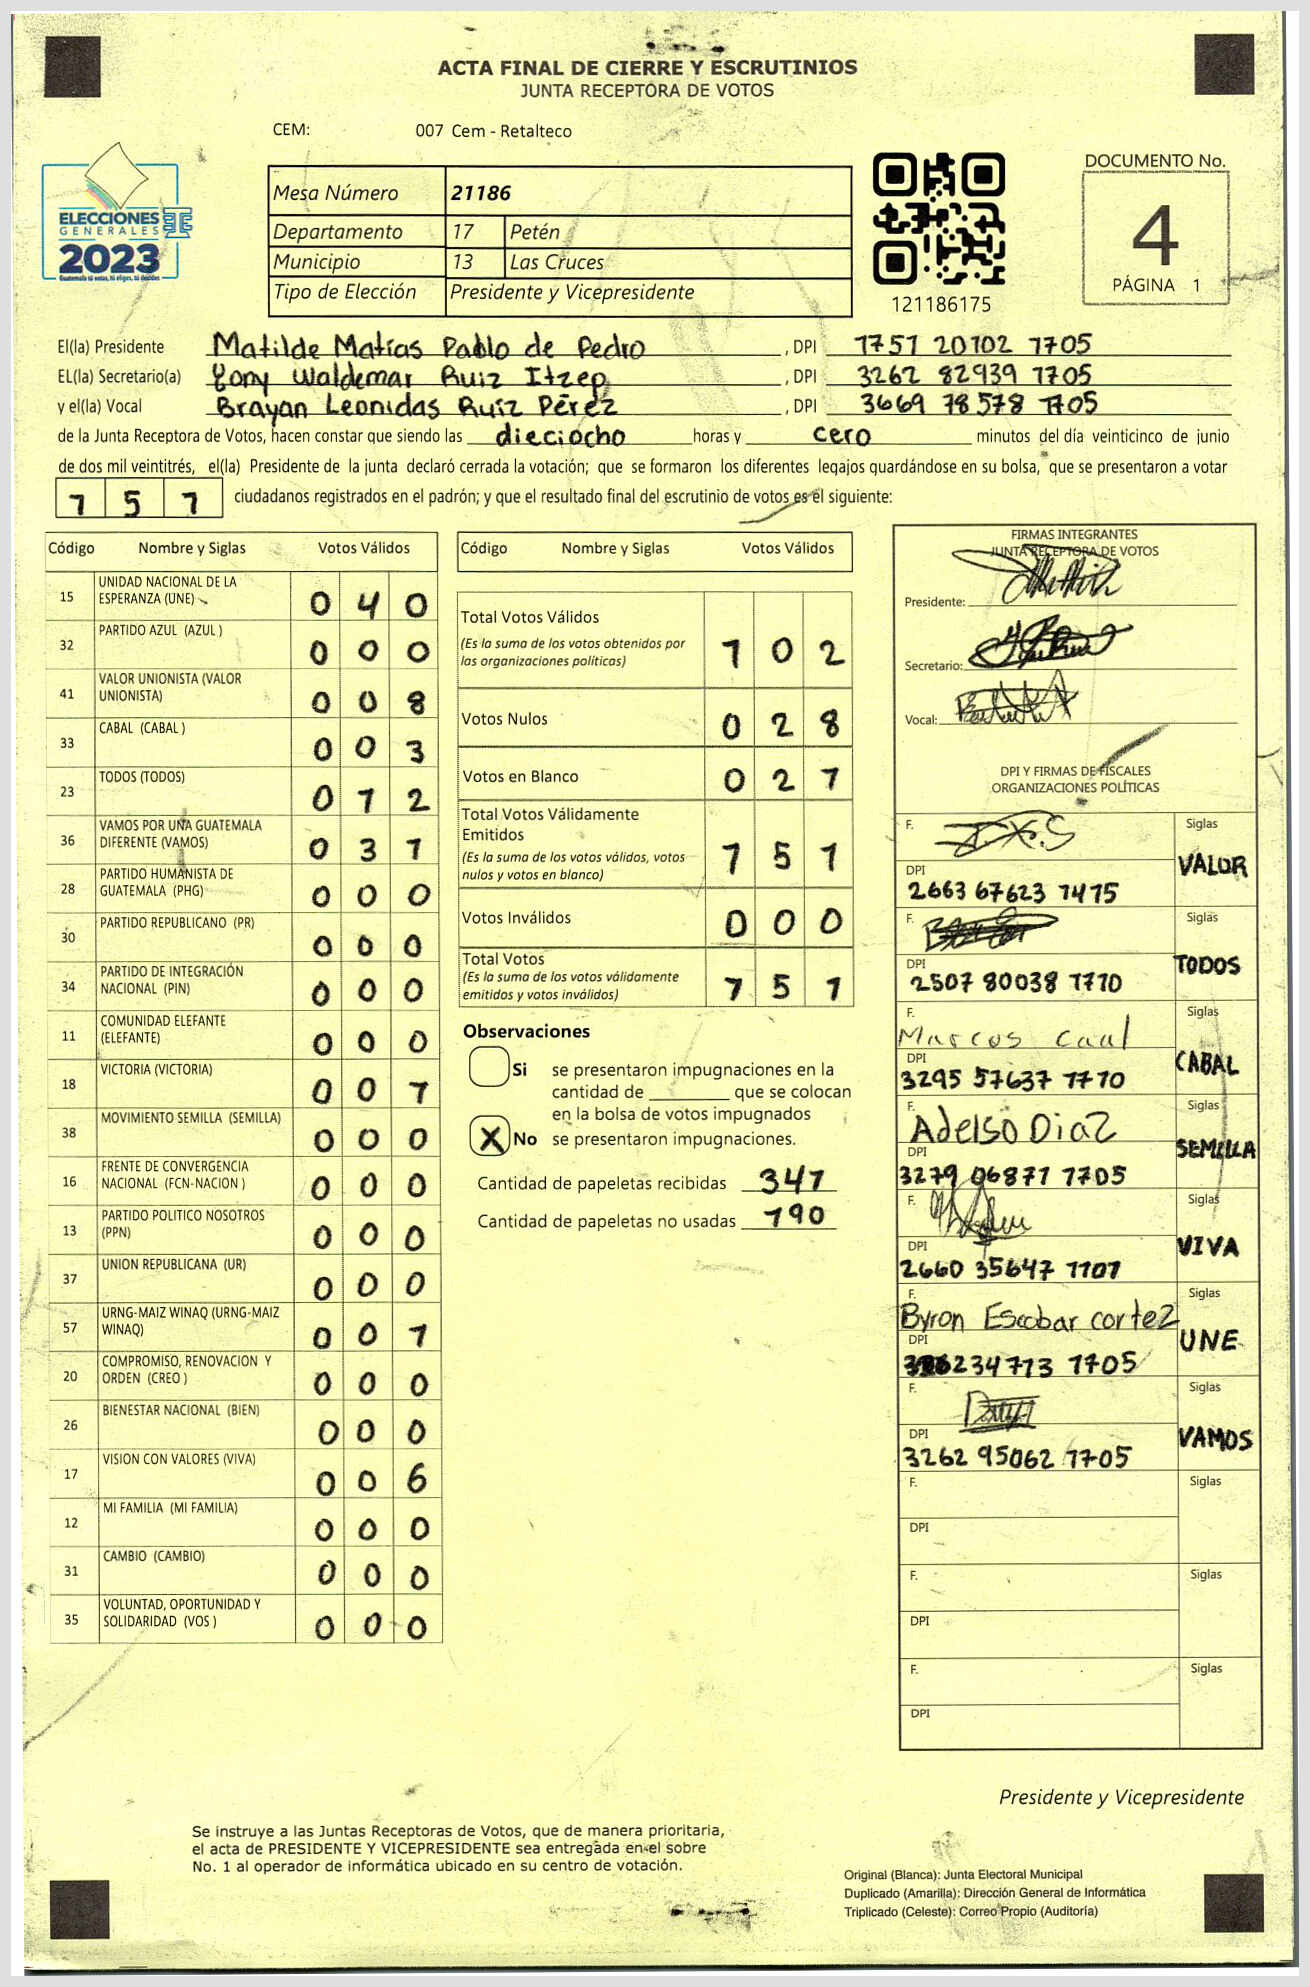 ACTA FINAL DE CIERRE Y ESCRUTINIOS
JUNTA RECEPTORA DE VOTOS
CEM: 007 Cem - Retalteco
ELECCIONES
GENERALES
2023
Guatemala tú votas, tú eliges, tú decides
TSE
Mesa Número 21186
Departamento 17 Petén
Municipio 13 Las Cruces
Tipo de Elección Presidente y Vicepresidente
121186175
DOCUMENTO No.
4
PÁGINA 1
El(la) Presidente Matilde Matías Pablo de Pedro , DPI 1751 20102 1705
EL(la) Secretario(a) Yony Waldemar Ruiz Itzep , DPI 3262 82939 1705
y el(la) Vocal Brayan Leonidas Ruiz Pérez , DPI 3669 78578 1705
de la Junta Receptora de Votos, hacen constar que siendo las dieciocho horas y cero minutos del día veinticinco de junio
de dos mil veintitrés, el(la) Presidente de la junta declaró cerrada la votación; que se formaron los diferentes legajos guardándose en su bolsa, que se presentaron a votar
1 5 7 ciudadanos registrados en el padrón; y que el resultado final del escrutinio de votos es el siguiente:
Código Nombre y Siglas Votos Válidos
15 UNIDAD NACIONAL DE LA
ESPERANZA (UNE) 0 4 0
32 PARTIDO AZUL (AZUL ) 0 0 0
41 VALOR UNIONISTA (VALOR
UNIONISTA) 0 0 8
33 CABAL (CABAL ) 0 0 3
23 TODOS (TODOS) 0 1 2
36 VAMOS POR UNA GUATEMALA
DIFERENTE (VAMOS) 0 3 1
28 PARTIDO HUMANISTA DE
GUATEMALA (PHG) 0 0 0
30 PARTIDO REPUBLICANO (PR) 0 0 0
34 PARTIDO DE INTEGRACIÓN
NACIONAL (PIN) 0 0 0
11 COMUNIDAD ELEFANTE
(ELEFANTE) 0 0 0
18 VICTORIA (VICTORIA) 0 0 1
38 MOVIMIENTO SEMILLA (SEMILLA) 0 0 0
16 FRENTE DE CONVERGENCIA
NACIONAL (FCN-NACION ) 0 0 0
13 PARTIDO POLITICO NOSOTROS
(PPN) 0 0 0
37 UNION REPUBLICANA (UR) 0 0 0
57 URNG-MAIZ WINAQ (URNG-MAIZ
WINAQ) 0 0 1
20 COMPROMISO, RENOVACION Y
ORDEN (CREO ) 0 0 0
26 BIENESTAR NACIONAL (BIEN) 0 0 0
17 VISION CON VALORES (VIVA) 0 0 6
12 MI FAMILIA (MI FAMILIA) 0 0 0
31 CAMBIO (CAMBIO) 0 0 0
35 VOLUNTAD, OPORTUNIDAD Y
SOLIDARIDAD (VOS ) 0 0 0
Código Nombre y Siglas Votos Válidos
Total Votos Válidos
(Es la suma de los votos obtenidos por
las organizaciones políticas) 1 0 2
Votos Nulos 0 2 8
Votos en Blanco 0 2 7
Total Votos Válidamente
Emitidos
(Es la suma de los votos válidos, votos
nulos y votos en blanco) 1 5 7
Votos Inválidos 0 0 0
Total Votos
(Es la suma de los votos válidamente
emitidos y votos inválidos) 1 5 7
Observaciones
Si se presentaron impugnaciones en la
cantidad de ________ que se colocan
en la bolsa de votos impugnados
X No se presentaron impugnaciones.
Cantidad de papeletas recibidas 347
Cantidad de papeletas no usadas 190
FIRMAS INTEGRANTES
JUNTA RECEPTORA DE VOTOS
Presidente:
Secretario:
Vocal:
DPI Y FIRMAS DE FISCALES
ORGANIZACIONES POLÍTICAS
F. Siglas
VALOR
DPI
2663 67623 1415
F. Siglas
TODOS
DPI
2507 80038 1710
F. Siglas
Marcos Caal
CABAL
DPI
3295 57637 1710
F. Siglas
Adelso Diaz
SEMILLA
DPI
3279 06871 1705
F. Siglas
VIVA
DPI
2660 35647 1101
F. Siglas
Byron Escobar cortez
UNE
DPI
34713 1705
F. Siglas
VAMOS
DPI
3262 95062 1705
F. Siglas
DPI
F. Siglas
DPI
F. Siglas
DPI
Presidente y Vicepresidente
Se instruye a las Juntas Receptoras de Votos, que de manera prioritaria,
el acta de PRESIDENTE Y VICEPRESIDENTE sea entregada en el sobre
No. 1 al operador de informática ubicado en su centro de votación.
Original (Blanca): Junta Electoral Municipal
Duplicado (Amarilla): Dirección General de Informática
Triplicado (Celeste): Correo Propio (Auditoría)